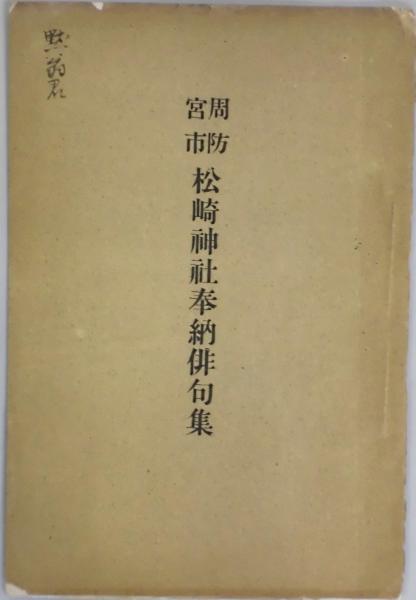 周防
宮市
松崎神社奉納俳句集
黙翁君